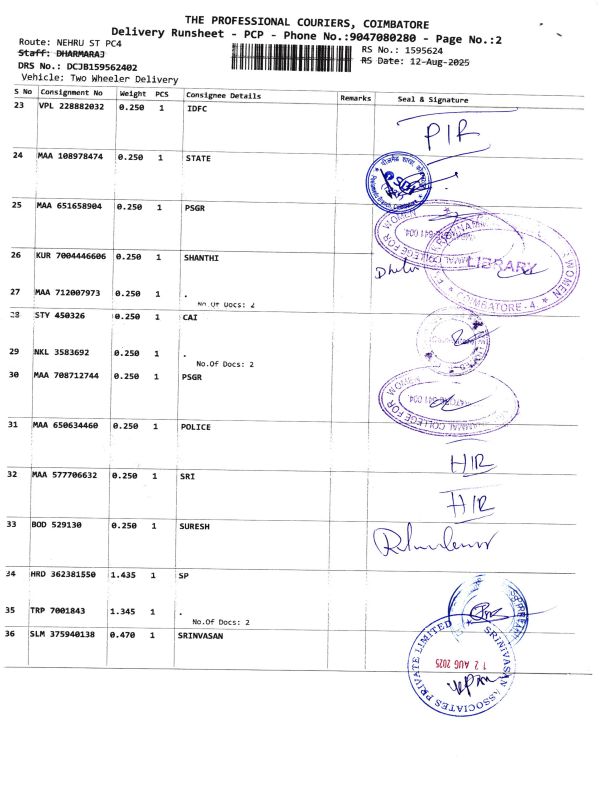 THE PROFESSIONAL COURIERS, COIMBATORE
Delivery Runsheet - PCP - Phone No.:9047080280 - Page No.:2
Route: NEHRU ST PC4
RS No.: 1595624
Staff: DHARMARAJ
RS Date: 12-Aug-2025
DRS No.: DCJB159562402
Vehicle: Two Wheeler Delivery
S No Consignment No Weight PCS Consignee Details Remarks Seal & Signature
23 VPL 228882032 0.250 1 IDFC
PIR
24 MAA 108978474 0.250 1 STATE
25 MAA 651658904 0.250 1 PSGR
COLLEGE FOR WOMEN
LIBRARY
COIMBATORE - 4.
26 KUR 7004446606 0.250 1 SHANTHI
27 MAA 712007973 0.250 1 .
No.Of Docs: 2
28 STY 450326 0.250 1 CAI
29 NKL 3583692 0.250 1 .
No.Of Docs: 2
30 MAA 708712744 0.250 1 PSGR
COLLEGE FOR WOMEN
31 MAA 650634460 0.250 1 POLICE
HIR
32 MAA 577706632 0.250 1 SRI
HIR
33 BOD 529130 0.250 1 SURESH
34 HRD 362381550 1.435 1 SP
35 TRP 7001843 1.345 1 .
No.Of Docs: 2
36 SLM 375940138 0.470 1 SRINVASAN
SRINIVASAN ASSOCIATES PRIVATE LIMITED
12 AUG 2025